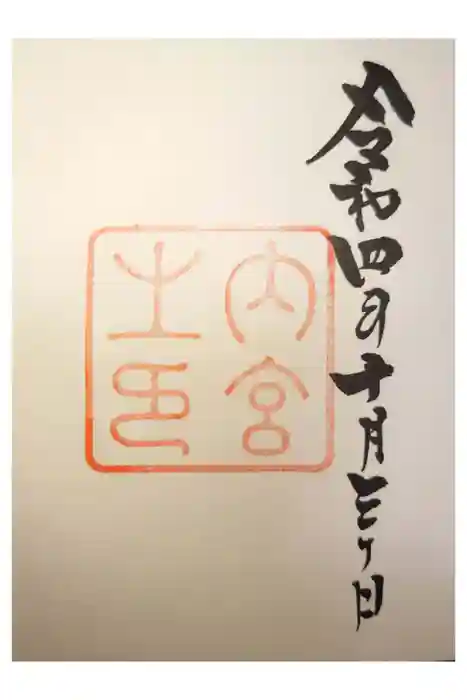 令和四年十月三十日
内宮
之印